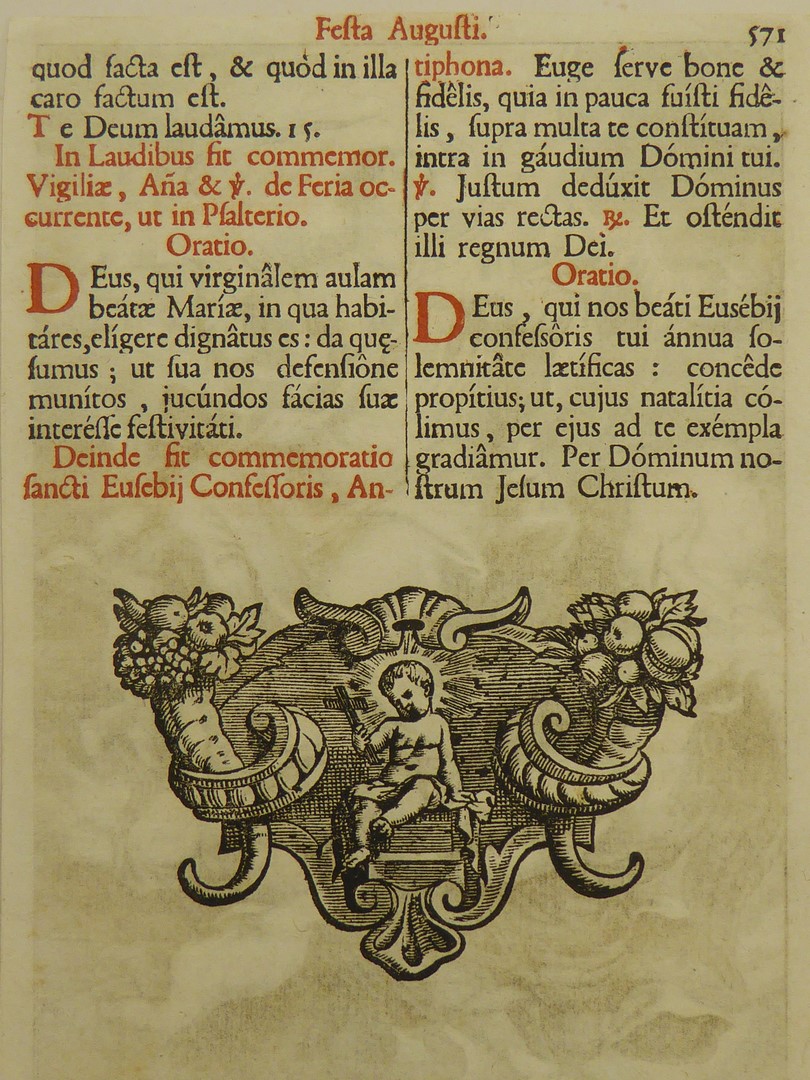 Feſta Auguſti.
571
quod facta eſt, & quòd in illa
caro factum eſt.
Te Deum laudâmus. 15.
In Laudibus fit commemor.
Vigiliæ, Aña & ℣. de Feria oc-
currente, ut in Pſalterio.
Oratio.
Deus, qui virginâlem aulam
beátæ Maríæ, in qua habi-
táres, elígere dignâtus es: da quę-
ſumus; ut ſua nos defenſiône
munítos, jucúndos fácias ſuæ
intereſſe feſtivitáti.
Deinde fit commemoratio
ſancti Euſebij Confeſſoris, An-
tiphona. Euge ſerve bone &
fidêlis, quia in pauca fuíſti fidê-
lis, ſupra multa te conſtítuam,
intra in gáudium Dómini tui.
℣. Juſtum dedúxit Dóminus
per vias rectas. ℟. Et oſténdit
illi regnum Dei.
Oratio.
Deus, qui nos beáti Euſébij
confeſsôris tui ánnua ſo-
lemnitâte lætíficas: concêde
propítius; ut, cujus natalítia có-
limus, per ejus ad te exémpla
gradiâmur. Per Dóminum no-
ſtrum Jeſum Chriſtum.